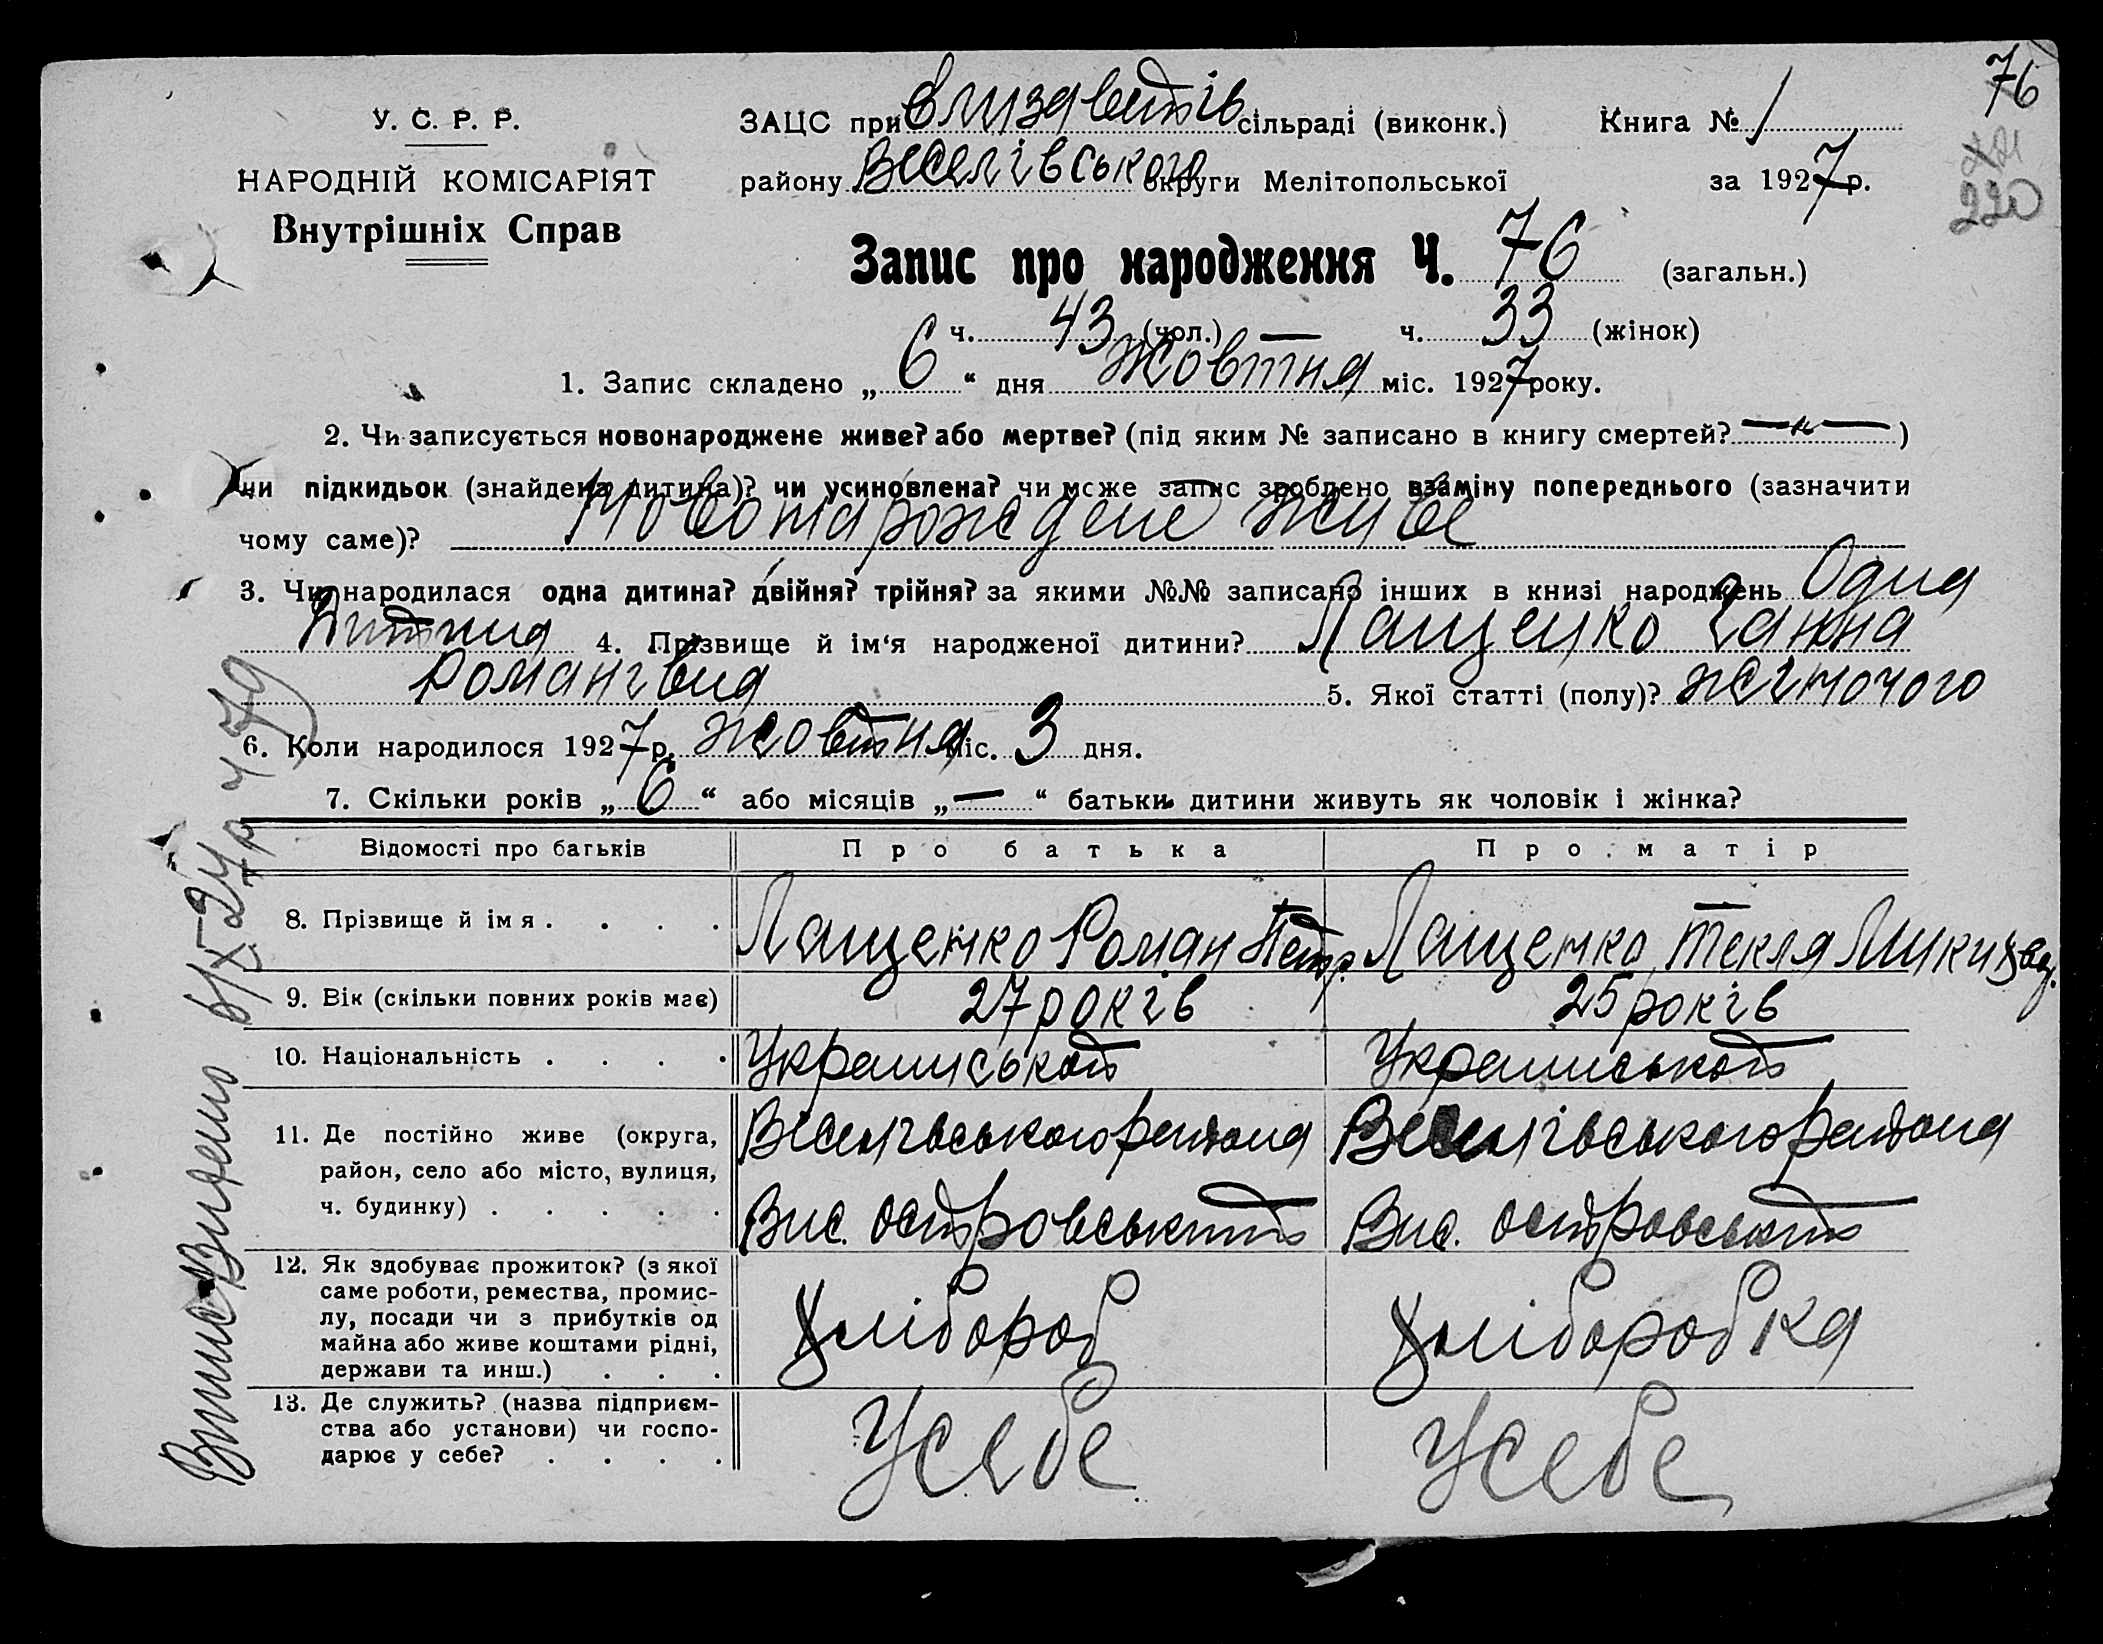 76
У. С. Р. Р.
НАРОДНІЙ КОМІСАРІЯТ
Внутрішніх Справ
ЗАЦС при Єлизаветів сільраді (виконк.) Книга № 1
району Веселівського округи Мелітопольської за 1927 р.
220
Запис про народження Ч. 76 (загальн.)
ч. 43 (чол.) — ч. 33 (жінок)
1. Запис складено „ 6 “ дня жовтня міс. 1927 року.
2. Чи записується новонароджене живе? або мертве? (під яким № записано в книгу смертей? —"— )
чи підкидьок (знайдена дитина)? чи усиновлена? чи може запис зроблено взаміну попереднього (зазначити
чому саме)? Новонарождене живе
3. Чи народилася одна дитина? двійня? трійня? за якими №№ записано інших в книзі народжень Одна
Дитина 4. Прізвище й ім‘я народженої дитини? Лащенко Ганна
Романівна 5. Якої статті (полу)? жіночого
6. Коли народилося 1927 р. жовтня міс. 3 дня.
7. Скільки років „ 6 “ або місяців „ — “ батьки дитини живуть як чоловік і жінка?
Відомості про батьків Про батька Про матір
8. Прізвище й ім я . . . . Лащенко Роман Петр. Лащенко Текля
9. Вік (скільки повних років має) 27 років 25 років
10. Національність . . . . Украинськот Украинськот
11. Де постійно живе (округа, Веселівського района Веселівського района
район, село або місто, вулиця,
ч. будинку) . . . . . Вис. Островськит Вис. Островськит
12. Як здобуває прожиток? (з якої
саме роботи, ремества, промис-
лу, посади чи з прибутків од Хлібороб Хліборобка
майна або живе коштами рідні,
держави та инш.) . . .
13. Де служить? (назва підприєм-
ства або установи) чи госпо- У себе У себе
дарює у себе? . . . .